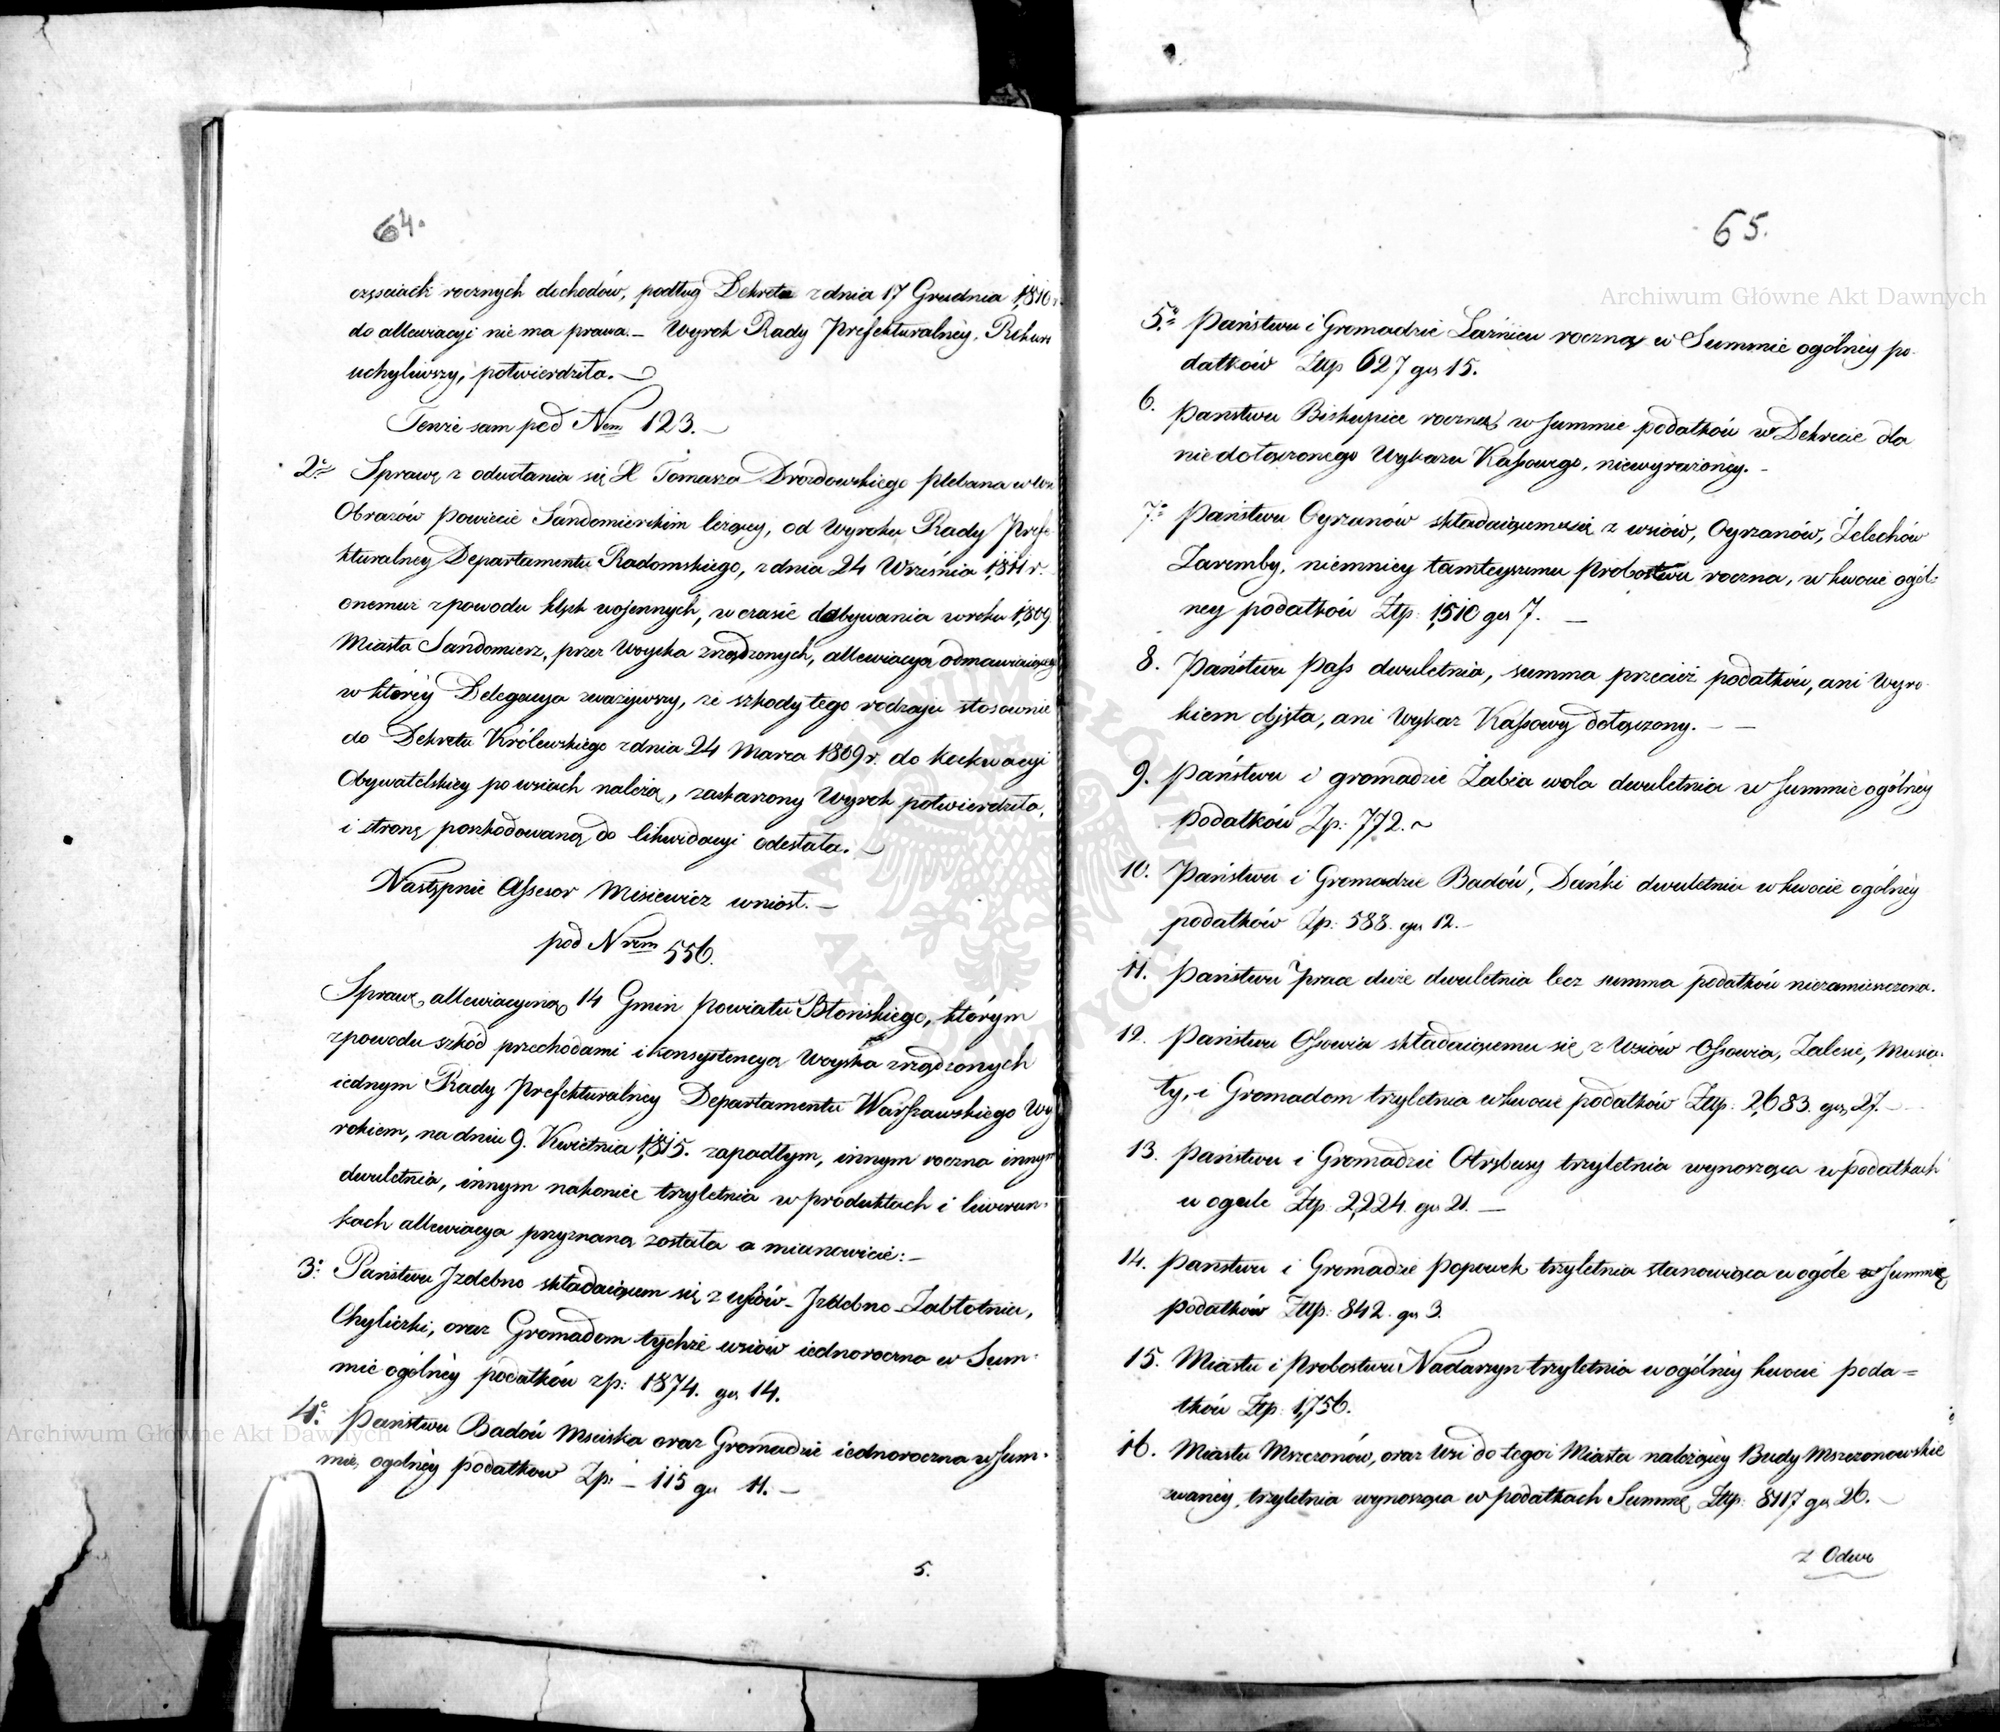 64.
częsciach rocznych dochodów, podług Dekretu z dnia 17 Grudnia 1810 r.
do allewiacyi nie ma prawa. – Wyrok Rady Prefekturalnéy, Rekurs
uchyliwszy, potwierdziła. –
Tenże sam pod Nem 123. –
2o Sprawę z odwołania się X Tomasza Drozdowskiego plebana w wsi
Obrazów Powiecie Sandomierskim leżącey, od Wyroku Rady Prefe-
kturalney Departamentu Radomskiego, z dnia 24 Września 1811 r.
onemuż z powodu klęsk wojennych, w czasie dobywania w roku 1809
Miasta Sandomierz, przez Woyska zrządzonych, allewiacyą odmawiaiącego
w któréy Delegacya zważywszy, że szkody tego rodzaju stosownie
do Dekretu Królewskiego z dnia 24 Marca 1809 r. do
Obywatelskiey po wsiach należą, zaskarżony Wyrok potwierdziła,
i stronę poszkodowaną do likwidacyi odesłała. –
Następnie Assesor Misiewicz wniosł. –
pod Nrem 556.
Sprawę allewiacyiną 14 Gmin Powiatu Błońskiego, którym
z powodu szkód przechodami i konsystencyą Woyska zrządzonych
iednym Rady Prefekturalnéy Departamentu Warszawskiego Wy
rokiem, na dniu 9. Kwietnia 1815. zapadłym, innym roczna innym
dwuletnia, innym nakoniec trzyletnia w produktach i liwerun-
kach allewiacya przyznaną została a mianowicie: –
3o Państwu Izdebno składaiącem się z wsiów – Izdebno – Zabłotnia,
Chyliczki, oraz Gromadom tychże wsiów iednoroczna w Sum-
mie ogólnéy podatków zp: 1874. gr. 14.
4o Państwu Badów Mściska oraz Gromadzie iednoroczna w Sum-
mie, ogólnéy podatków Zp: – 115 gr 11. –
5.
65.
5o Państwu i Gromadzie Łaźniew roczną w Summie ogólnéy po-
datków Złp 627 gr 15.
6. Państwu Biskupice roczną w Summie podatków w Dekrecie dla
niedołączonego Wykazu Kassowego, niewyrażonéy. –
7o Państwu Oyrzanów składaiącemu się z wsiów, Oyrzanów, Żelechów
Zaremby, niemniey tamteyszemu Probostwu roczna, w kwocie ogól-
ney podatków Złp: 1510 gr 7. –
8. Państwu Pass dwuletnia, summa przecież podatków, ani Wyro-
kiem objęta, ani Wykaz Kassowy dołączony. – –
9. Państwu i gromadzie Żabia wola dwuletnia w Summie ogólnéy
Podatków Zp: 772. ~
10. Państwu i Gromadzie Badów, Dańki dwuletnia w kwocie ogólnéy
podatków Zp: 588. gr 12. –
11. Państwu Prace duże dwuletnia lecz summa podatków niezamieszczona.
12. Państwu Ossowia składaiącemu się z Wsiów Ossowia, Zalesie, Musia-
ły, i Gromadom trzyletnia w kwocie podatków Złp: 2,683. gr. 27. –
13. Państwu i Gromadzie Otrębusy trzyletnia wynosząca w podatkach
w ogule Złp. 2,224. gr 21. –
14. Państwu i Gromadzie Popowek trzyletnia stanowiąca w ogóle w Summie
podatków Złp: 842. gr 3.
15. Miastu i Probostwu Nadarzyn trzyletnia w ogólnéy kwocie poda=
tków Złp: 1,756.
16. Miastu Mszczonów, oraz Wsi do tegoż Miasta należącey Budy Mszczonowskie
zwanéy, trzyletnia wynosząca w podatkach Summę Złp: 8117 gr 26. –
z Odwo
Archiwum Główne Akt Dawnych
Archiwum Główne Akt Dawnych